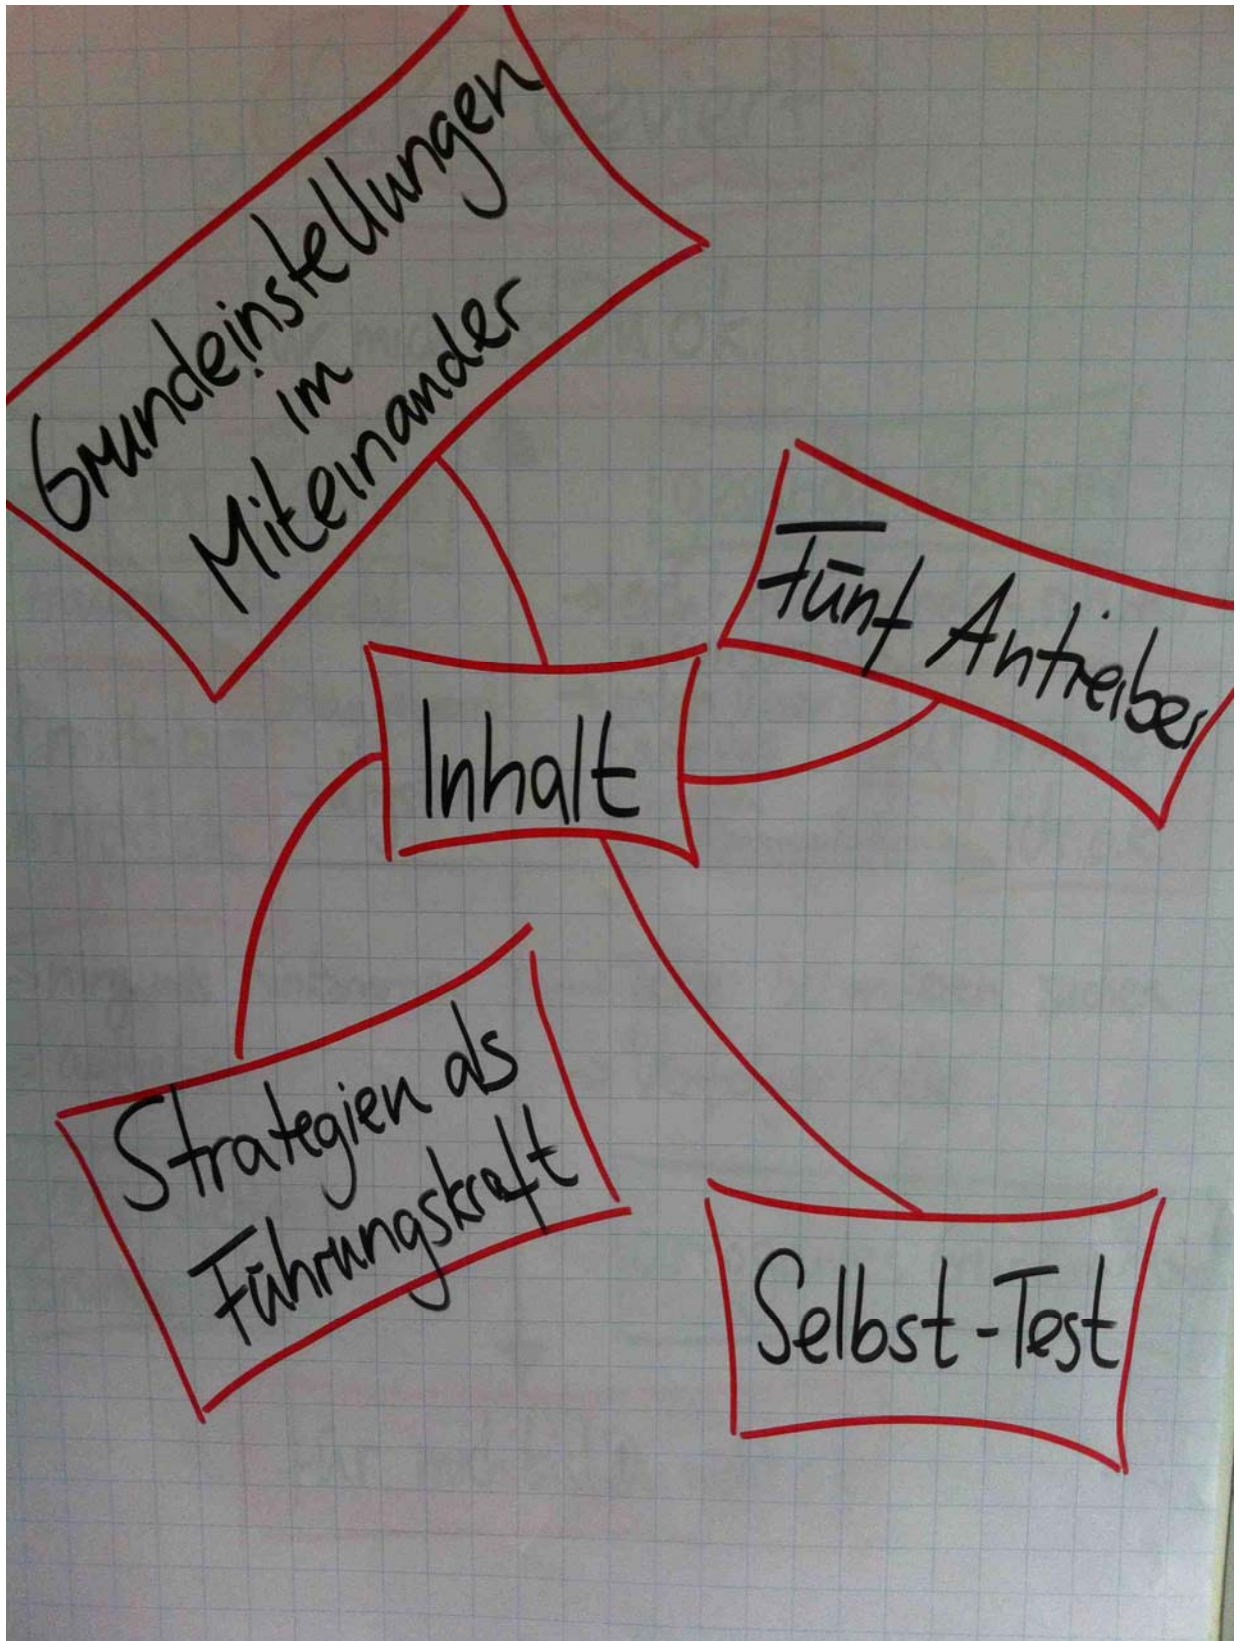 Grundeinstellungen
im
Miteinander
Fünf Antreiber
Inhalt
Strategien als
Führungskraft
Selbst-Test